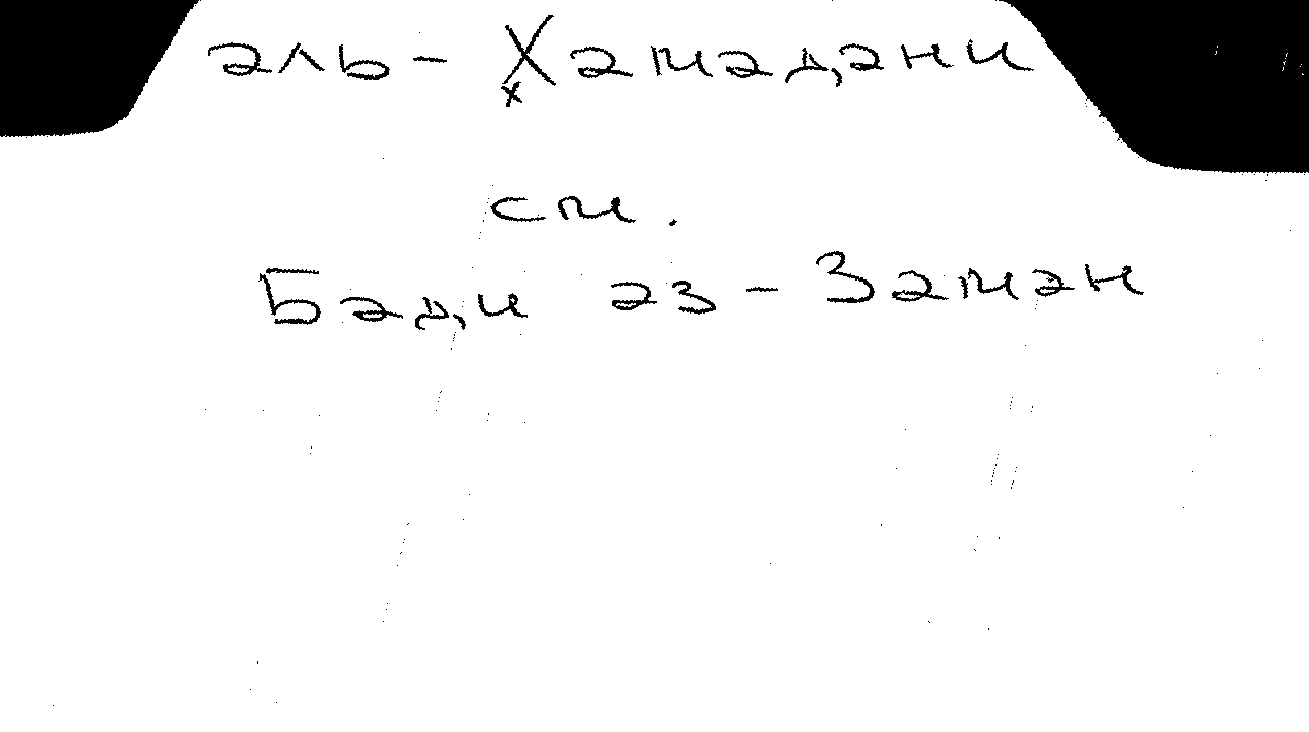 аль-Хамадани
х
см.
Бади аз-Заман